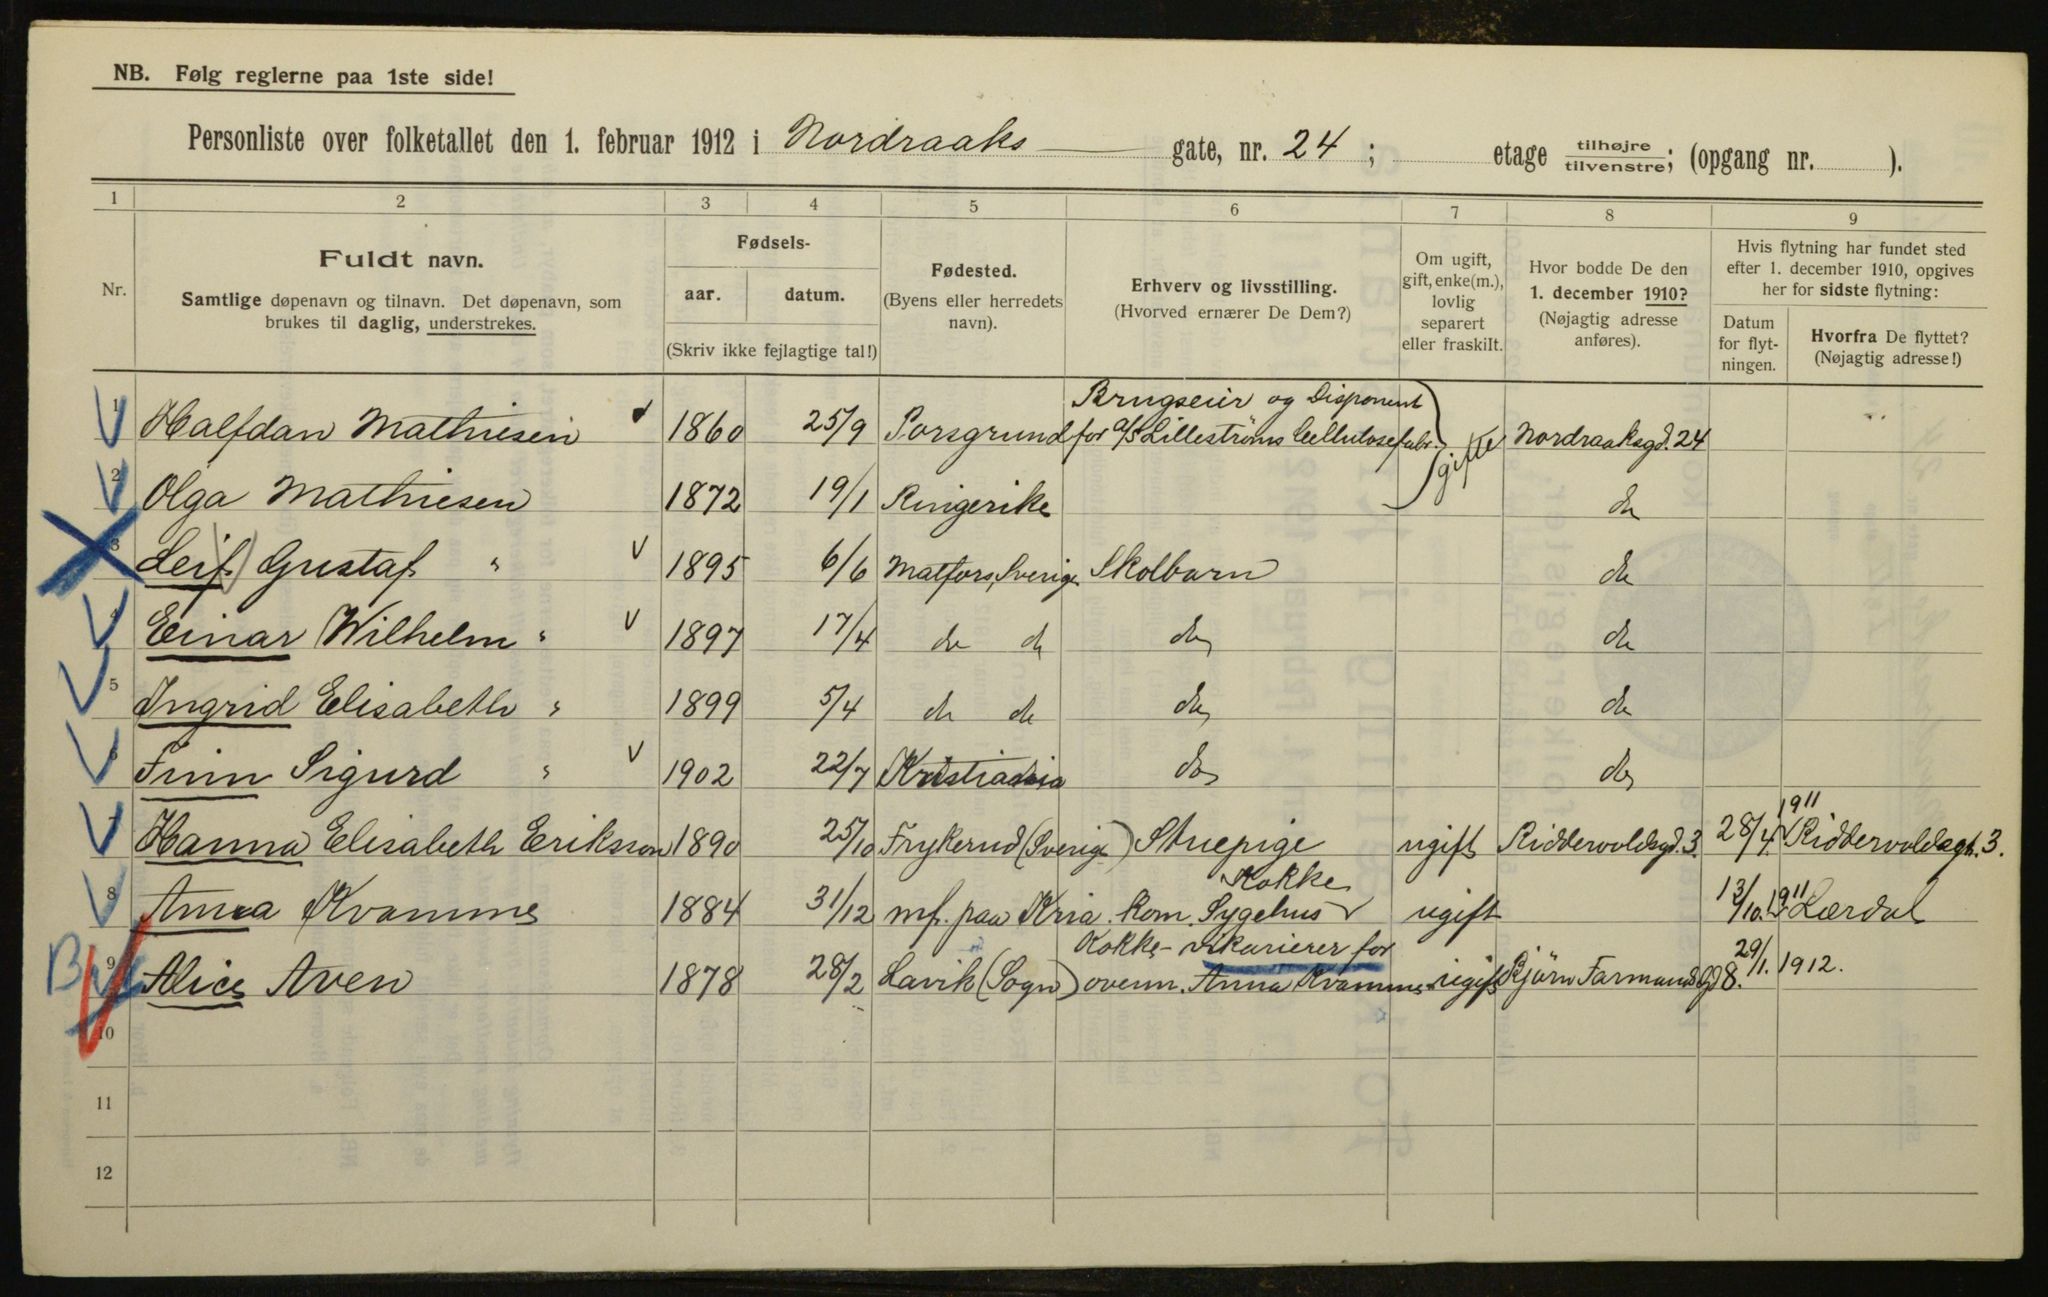 NB. Følg reglerne paa 1ste side!
Personliste over folketallet den 1. februar 1912 i Nordraaks gate, nr. 24; etage tilhøjre tilvenstre; (opgang nr. ).
1 2 3 4 5 6 7 8 9
Nr.
Fuldt navn.
Samtlige døpenavn og tilnavn. Det døpenavn, som
brukes til daglig, understrekes.
Fødsels-
aar. datum.
(Skriv ikke fejlagtige tal!)
Fødested.
(Byens eller herredets
navn).
Erhverv og livsstilling.
(Hvorved ernærer De Dem?)
Om ugift,
gift, enke(m.),
lovlig
separert
eller fraskilt.
Hvor bodde De den
1. december 1910?
(Nøjagtig adresse
anføres).
Hvis flytning har fundet sted
efter 1. december 1910, opgives
her for sidste flytning:
Datum
for flyt-
ningen.
Hvorfra De flyttet?
(Nøjagtig adresse!)
Brugseier og Disponent
1 Halfdan Mathiesen 1860 25/9 Porsgrund for a/s Lillestrøms Cellulosefabr. gifte Nordraaksgd. 24
2 Olga Mathiesen 1872 19/1 Ringerike do
3 Leif Gustaf " 1895 6/6 Matfors, Sverige Skolbarn do
4 Einar Wilhelm " 1897 17/4 do do do do
5 Ingrid Elisabeth " 1899 5/4 do do do do
6 Finn Sigurd " 1902 22/7 Kristiania do do
7 Hanna Elisabeth Eriksson 1890 25/10 Frykerud (Sverige) Stuepige ugift Riddervoldsgd. 3. 28/4 1911 Riddervoldsgt. 3.
Kokke
8 Anna Kvamme 1884 31/12 mf. paa Kria. kom. Sygehus ugift 13/10. 1911 Lærdal
Kokke - vikarierer for
9 Alice Aven 1878 28/2 Lavik (Sogn) ovenn. Anna Kvamme ugift Bjørn Farmands Gd 8. 29/1. 1912.
10
11
12